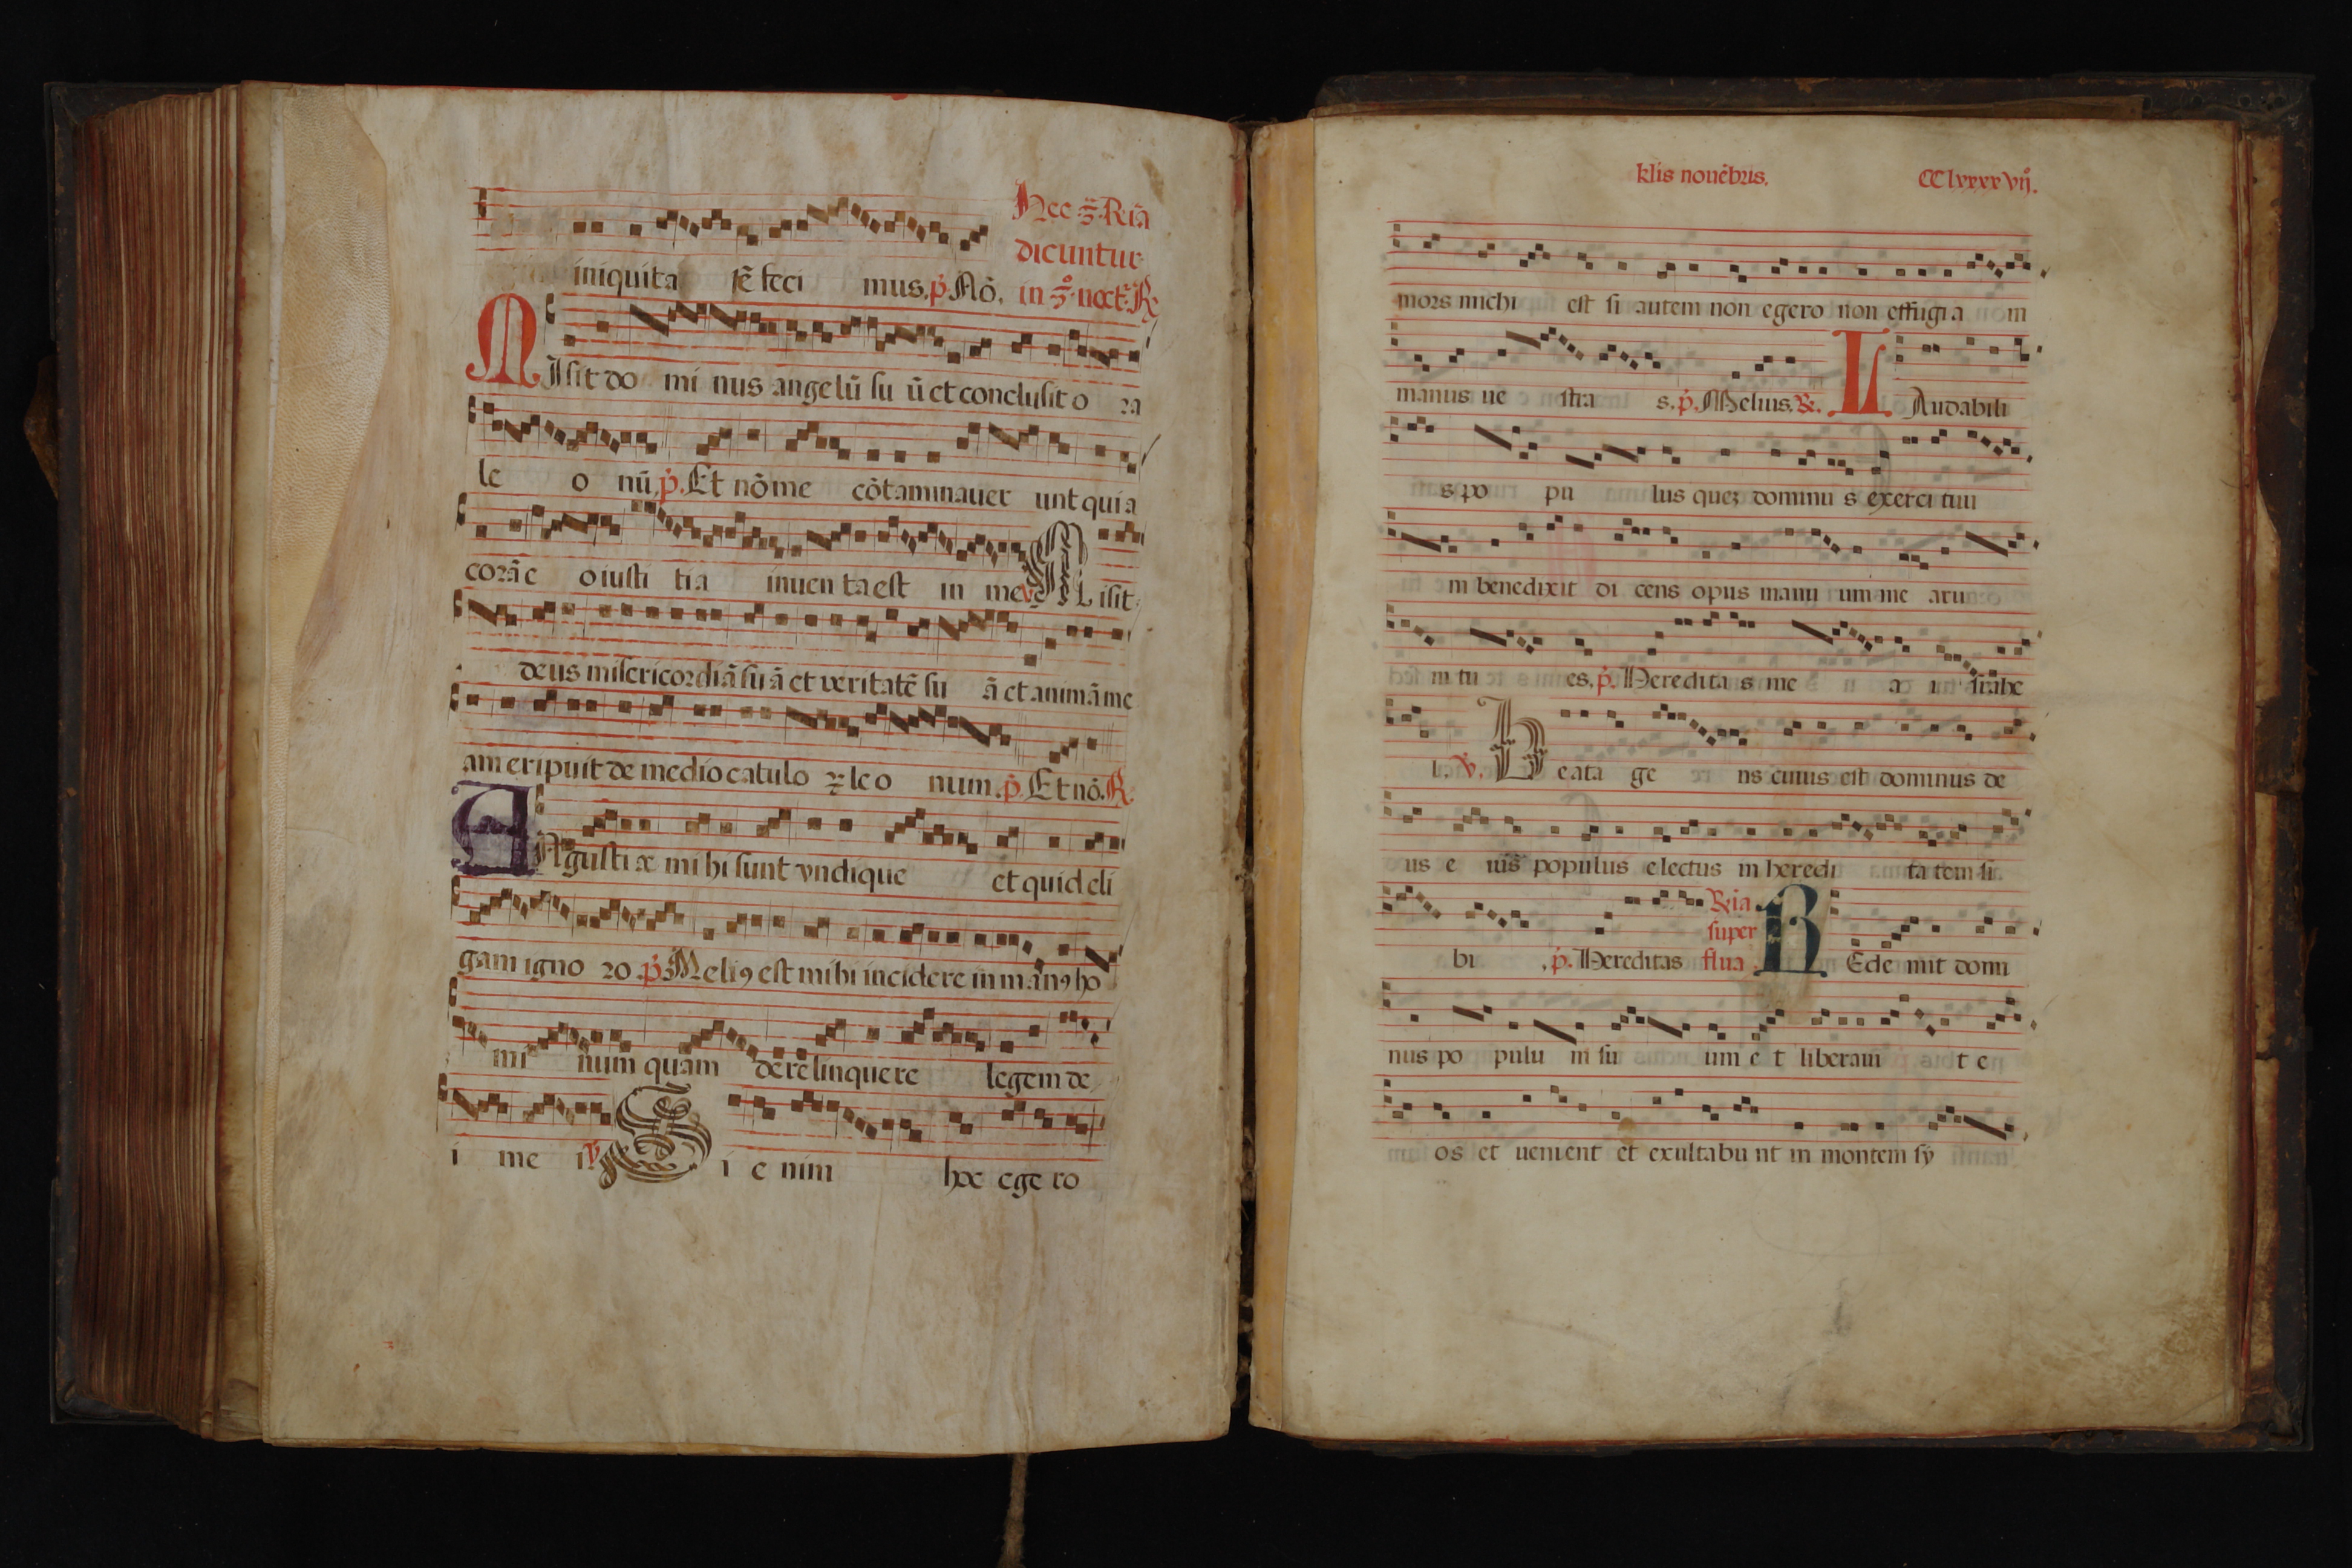 Hec .3. Rĩa
dicuntur
iniquita tẽ feci mus. p̃. Nõ. in .3.º noct. R.
MIsit do mi nus angelũ su ũ et conclusit o ra
le o nũ. p̃. Et nõ me cõtaminauer unt quia
corã e o iusti tia inuen ta est in me V. Misit
deus misericordiã su ã et veritatẽ su ã et animã me
am eripuit de medio catulo ꝝ le o num. p̃. Et nõ. R.
ANgusti æ mi hi sunt vndique et quid eli
gam igno ro. p̃. Meliꝯ est mihi incidere in manꝯ ho
mi num quam derelinquere legem de
i me i V. Si e nim hoc ege ro
klis nouẽbris. CClxxxxvij.
mors michi est si autem non egero non effugia m
manus ue stra s. p̃. Melius. R. LAudabili
s po pu lus quez dominu s exerci tuu
m benedixit di cens opus manu um me aru
m tu es. p̃. Heredita s me a israhe
l. V. Beata ge ns cuius est dominus de
us e ius populus electus in heredi ta tem si
Rĩa
super
bi . p̃. Hereditas flua . REde mit domi
nus po pulu m su um e t liberaui t e
os et uenient et exultabu nt in montem sy